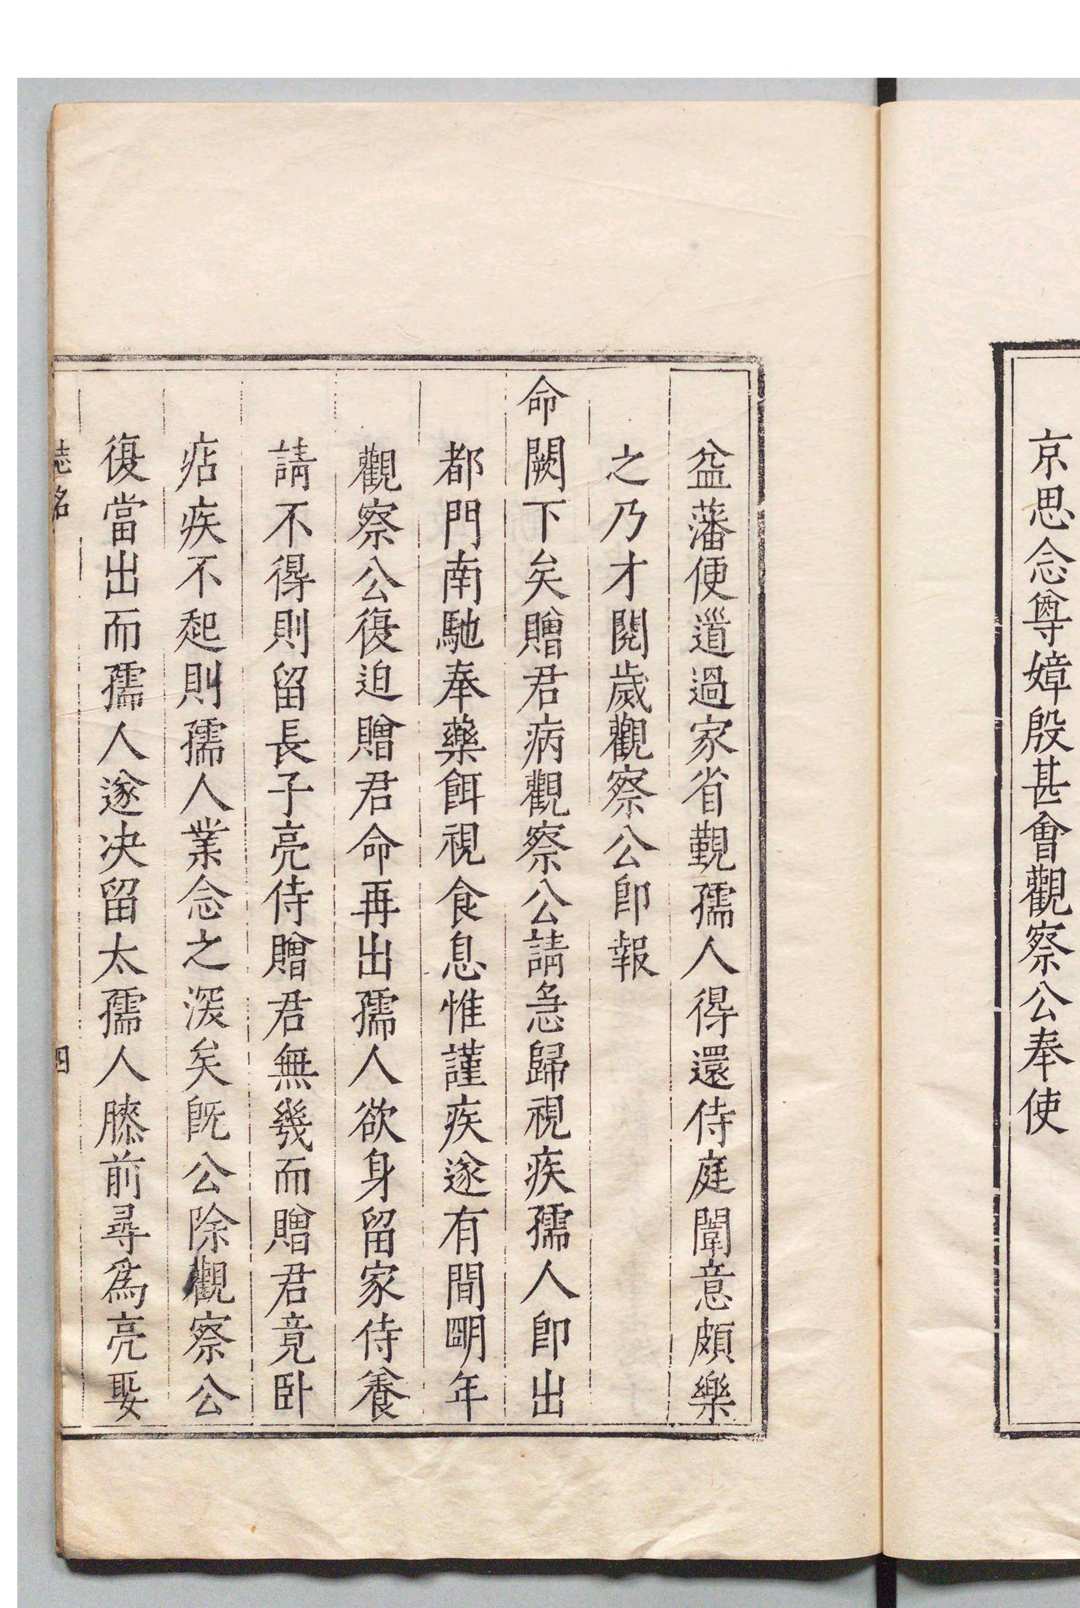 京思念尊嫜殷甚會觀察公奉使
益藩便道過家省觀孺人得還侍庭闈意頗樂
之乃才閱歲觀察公卽報
命闕下矣贈君病觀察公請急歸視疾孺人卽出
都門南馳奉藥餌視食息惟謹疾遂有間明年
觀察公復迫贈君命再出孺人欲身留家侍養
請不得則留長子亮侍贈君無幾而贈君竟卧
痁疾不起則孺人業念之深矣旣公除觀察公
復當出而孺人遂决留太孺人膝前尋為亮娶
誌銘
四